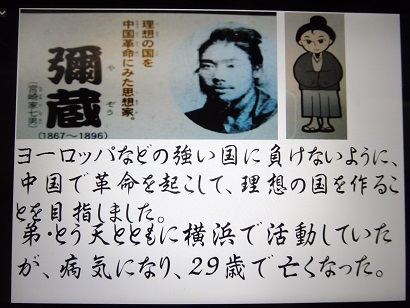 理想の国を
中国革命にみた思想家。
彌蔵
や ぞう
(宮崎家七男)
(1867～1896)
ヨーロッパなどの強い国に負けないように、
中国で革命を起こして、理想の国を作るこ
とを目指しました。
弟・とう天とともに横浜で活動していた
が、病気になり、29歳で亡くなった。